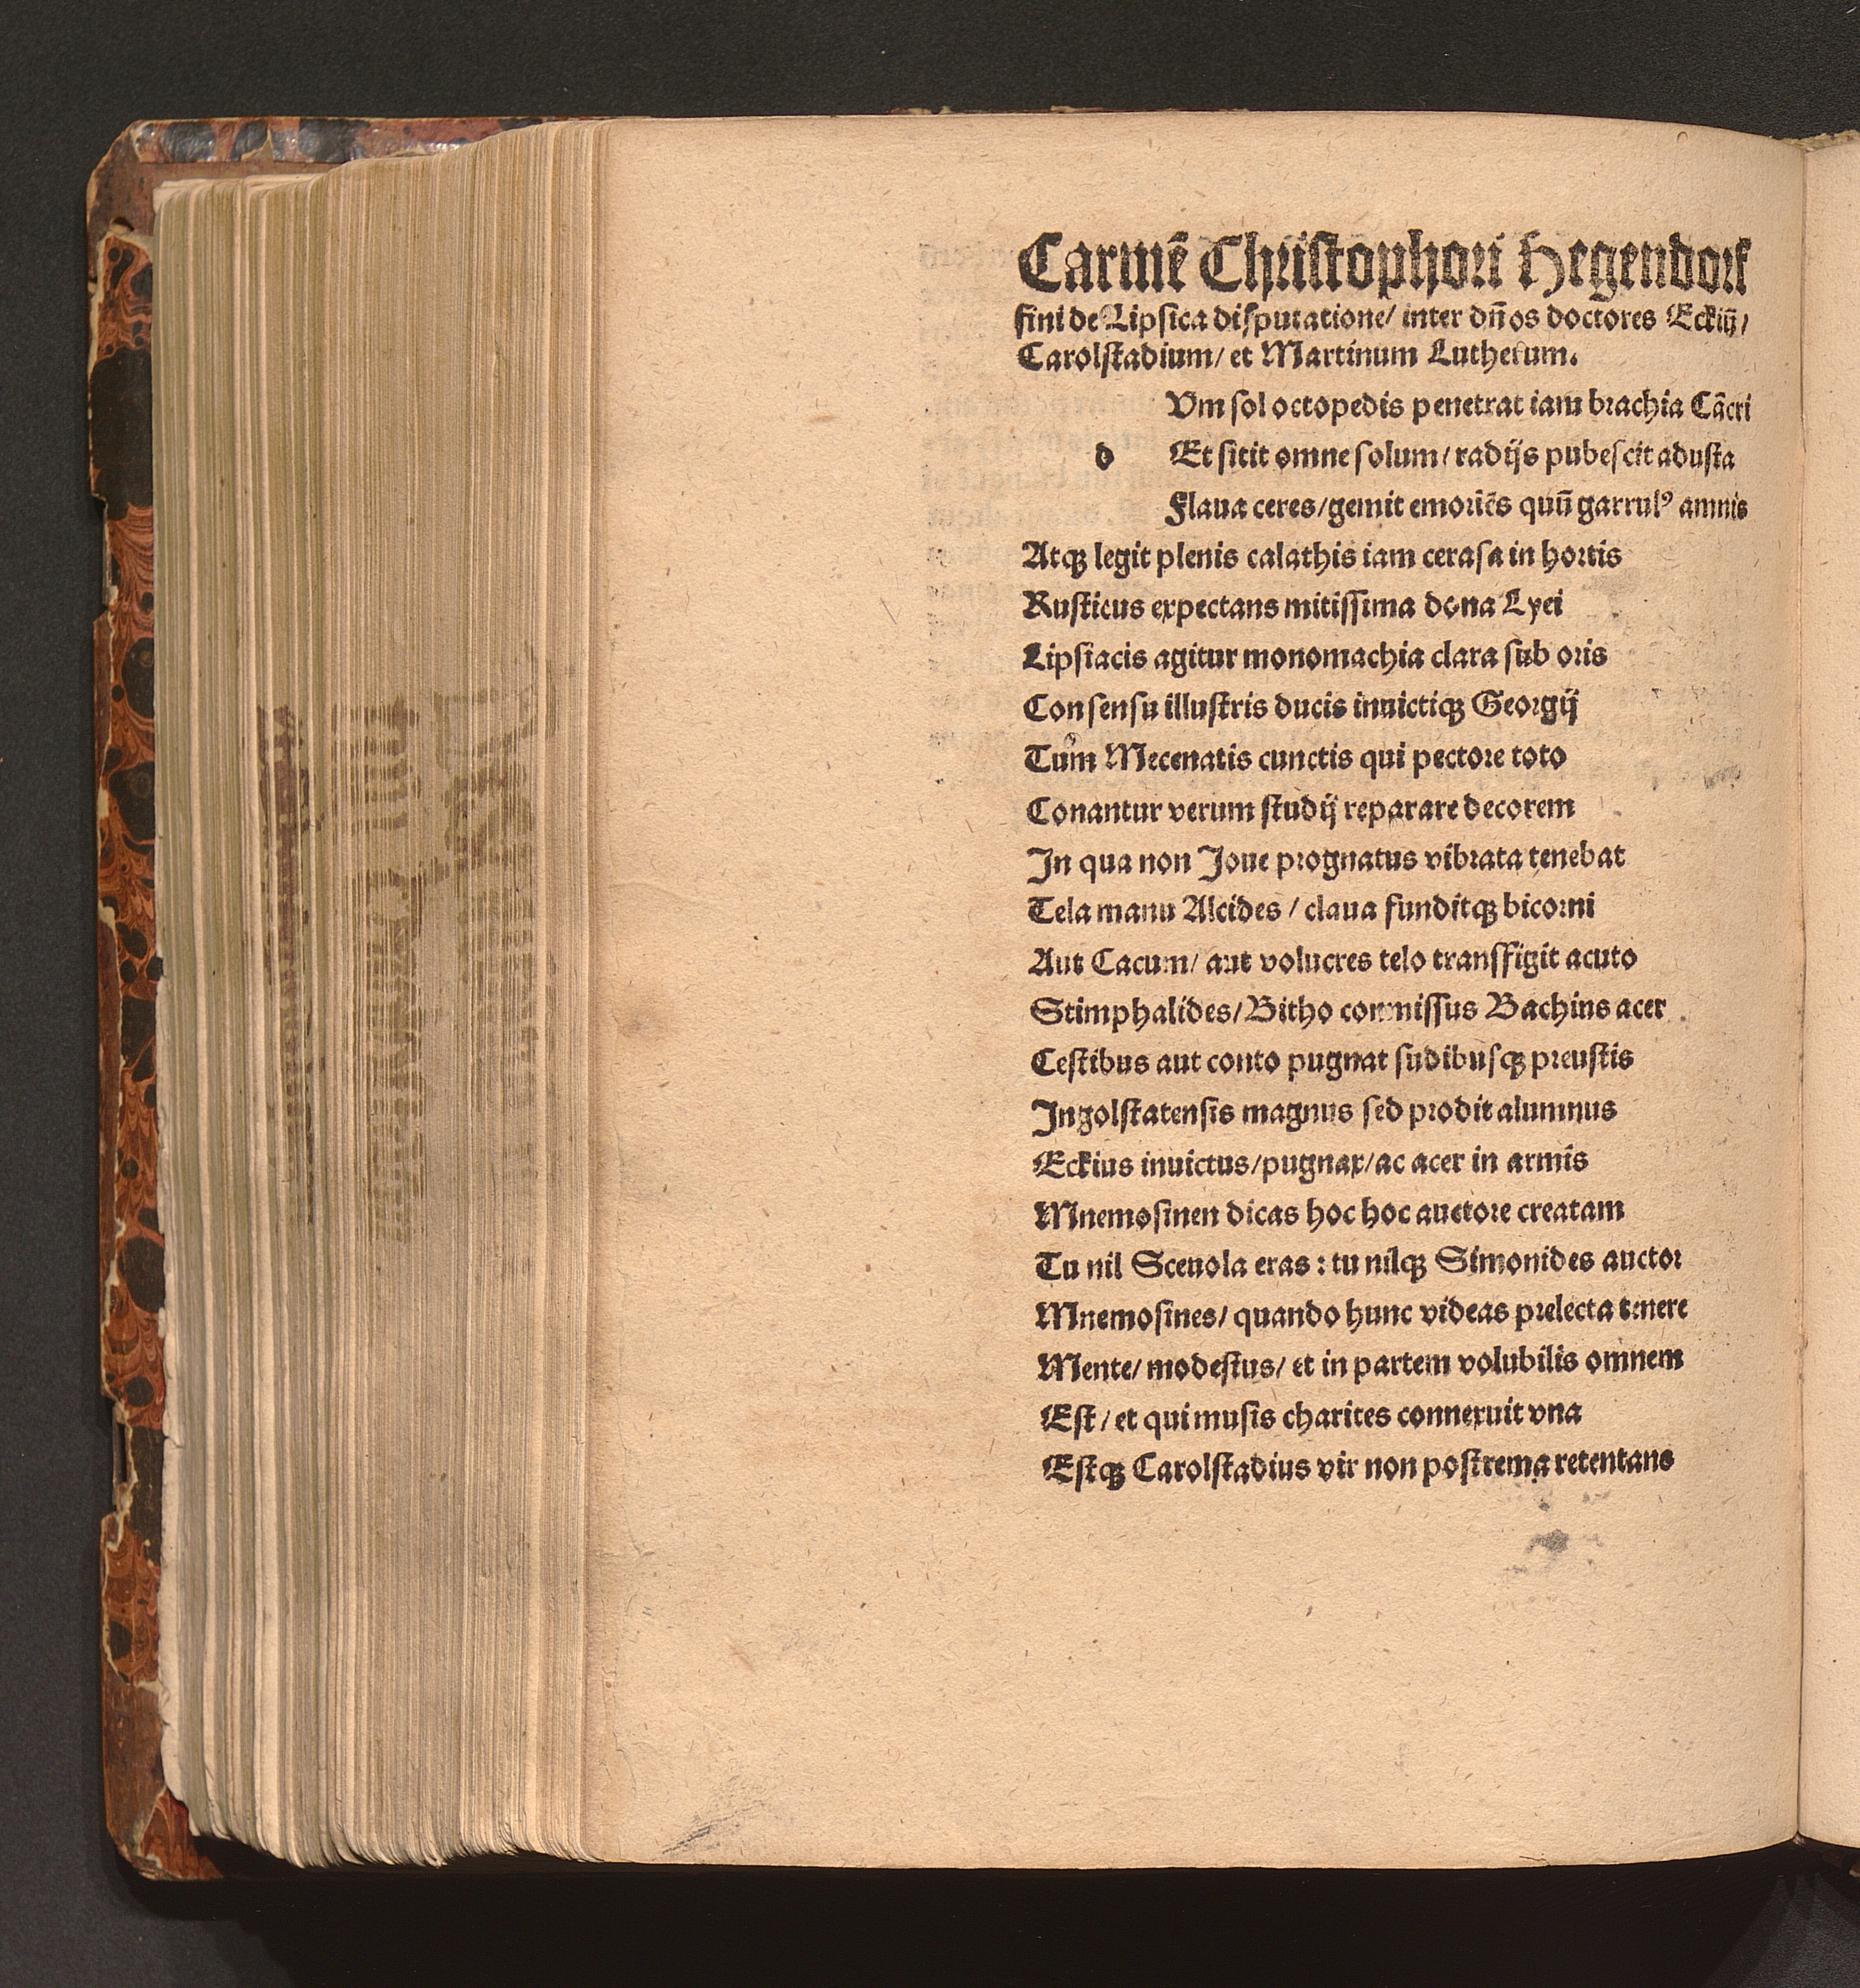 Carmē Christophori Hegendorf
fini de Lipsica disputatione/ inter dn̄os doctores Eckiū/
Carolstadium/ et Martinum Lutherum.
Vm sol octopedis penetrat iam brachia Cācri
d Et sitit omne solum/ radijs pubescit adusta
Flaua ceres/ gemit emoriēs quū garrulꝰ amnis
Atqꝫ legit plenis calathis iam cerasa in hortis
Rusticus expectans mitissima dona Lyei
Lipsiacis agitur monomachia clara sub oris
Consensu illustris ducis inuictiqꝫ Georgij
Tum Mecenatis cunctis qui pectore toto
Conantur verum studij reparare decorem
In qua non Ioue prognatus vibrata tenebat
Tela manu Alcides/ claua funditqꝫ bicorni
Aut Cacum/ aut volucres telo transffigit acuto
Stimphalides/ Bitho commissus Bachius acer
Cestibus aut conto pugnat sudibusqꝫ preustis
Ingolstatensis magnus sed prodit alumnus
Eckius inuictus/ pugnax/ ac acer in armis
Mnemosinen dicas hoc hoc auctore creatam
Tu nil Sceuola eras: tu nilqꝫ Simonides auctor
Mnemosines/ quando hunc videas prelecta tenere
Mente/ modestus/ et in partem volubilis omnem
Est/ et qui musis charites connexuit vna
Estqꝫ Carolstadius vir non postrema retentans